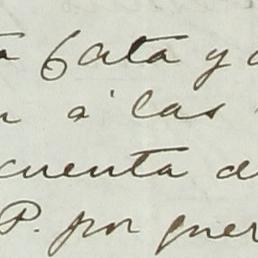 a Gata y a
á las
cuenta d
P. por quer